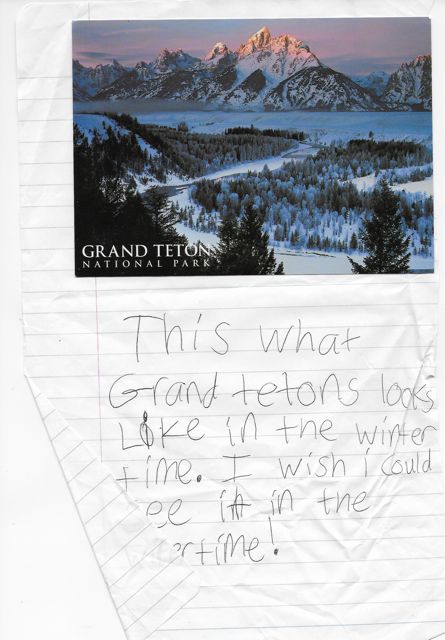 GRAND TETON
NATIONAL PARK
This what
Grand tetons looks
Like in the winter
time. I wish i could
ee it in the
ertime!